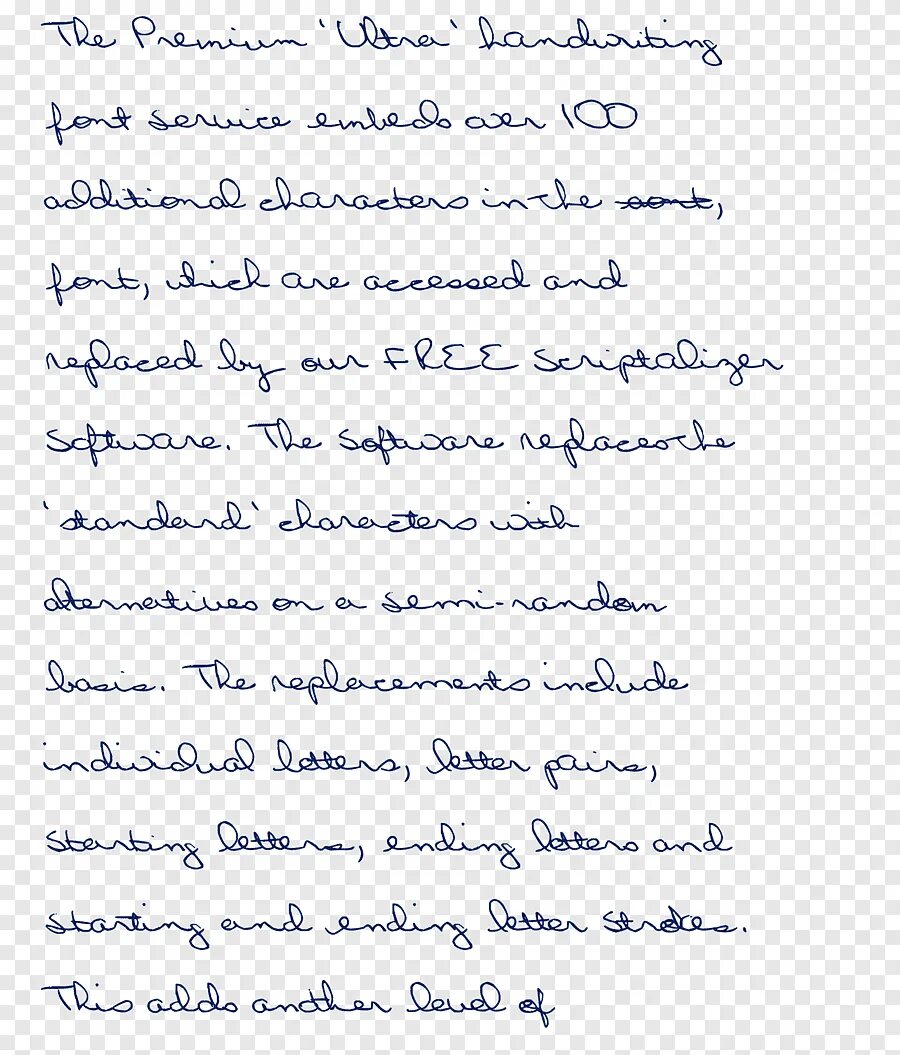 The Premium 'Ultra' handwriting
font service embeds over 100
additional characters in the
font, which are accessed and
replaced by our FREE Scriptalizer
Software. The software replaces the
'standard' characters with
alternatives on a semi-random
basis. The replacements include
individual letters, letter pairs,
starting letters, ending letters and
starting and ending letter strokes.
This adds another level of